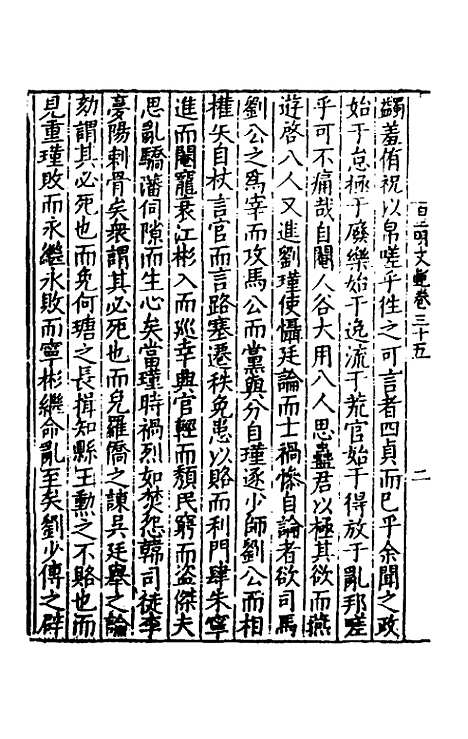 皇明文範卷三十五
二
蠲羞侑祝以帛嗟乎性之可言者四貞而已乎余聞之政
始于怠極于廢樂始于逸流于荒官始于得放于亂邦嗟
乎可不痛哉自閹人谷大用八人思蠱君以極其欲而燕
遊啓八人又進劉瑾使懾廷論而士禍慘自論者欲司馬
劉公之爲宰而攻馬公而黨與分自瑾逐少師劉公而相
權失自杖言官而言路塞遷秩免患以賂而利門肆朱寧
進而閹寵衰江彬入而巡幸典官輕而頽民窮而盜傑夫
思亂驕藩伺隙而生心矣當瑾時禍烈如焚怨韓司徒李
夢陽刺骨矣衆謂其必死也而免羅僑之諫吳廷舉之論
劾謂其必死也而免何瑭之長揖知縣王勳之不賂也而
見重瑾敗而永繼永敗而寧彬繼命亂至矣劉少傅之辟